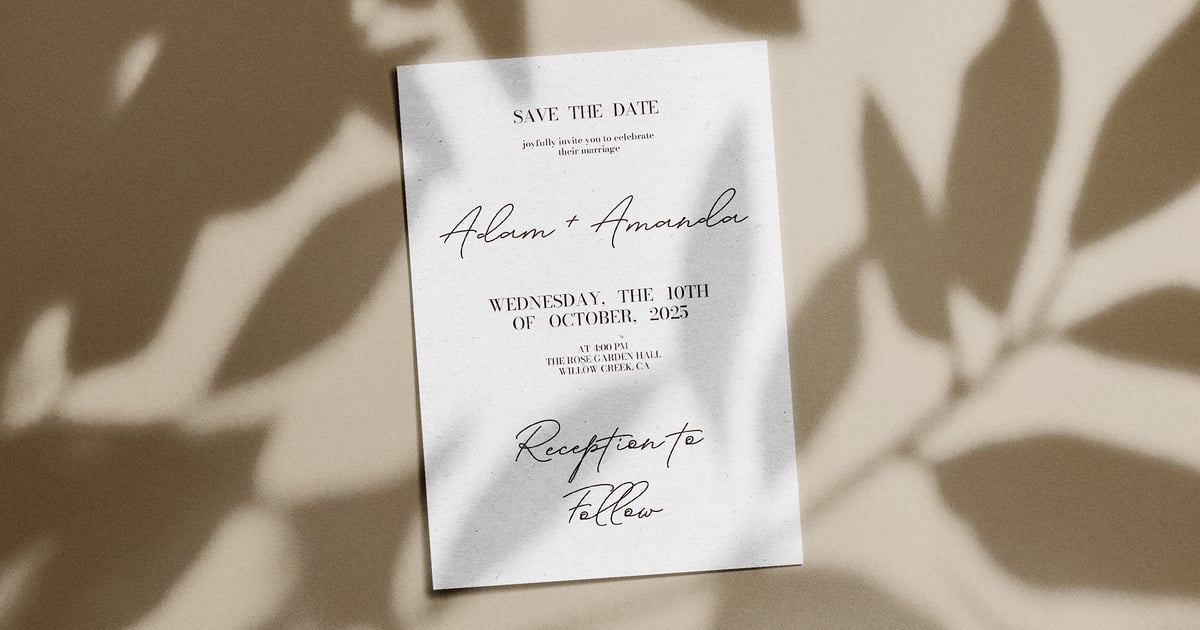 SAVE THE DATE
joyfully invite you to celebrate
their marriage
Adam + Amanda
WEDNESDAY, THE 10TH
OF OCTOBER, 2025
AT 4:00 PM
THE ROSE GARDEN HALL
WILLOW CREEK, CA
Reception to
Follow